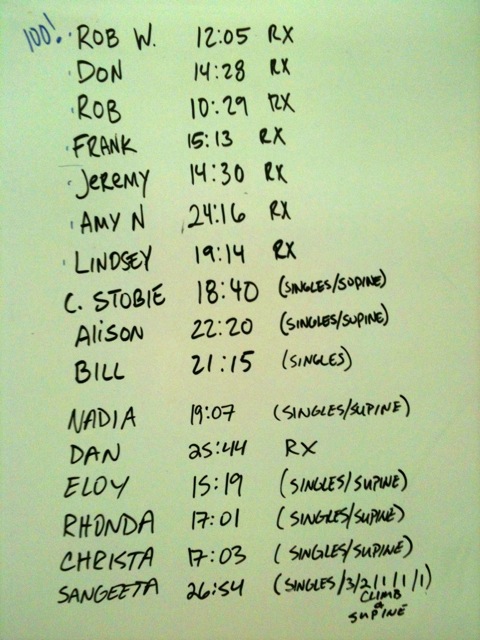 100! ROB W. 12:05 RX
DON 14:28 RX
ROB 10:29 RX
FRANK 15:13 RX
JEREMY 14:30 RX
AMY N 24:16 RX
LINDSEY 19:14 RX
C. STOBIE 18:40 (SINGLES/SUPINE)
ALISON 22:20 (SINGLES/SUPINE)
BILL 21:15 (SINGLES)
NADIA 19:07 (SINGLES/SUPINE)
DAN 25:44 RX
ELOY 15:19 (SINGLES/SUPINE)
RHONDA 17:01 (SINGLES/SUPINE)
CHRISTA 17:03 (SINGLES/SUPINE)
SANGEETA 26:54 (SINGLES/3/2/1/1/1/1)
CLIMB
&
SUPINE